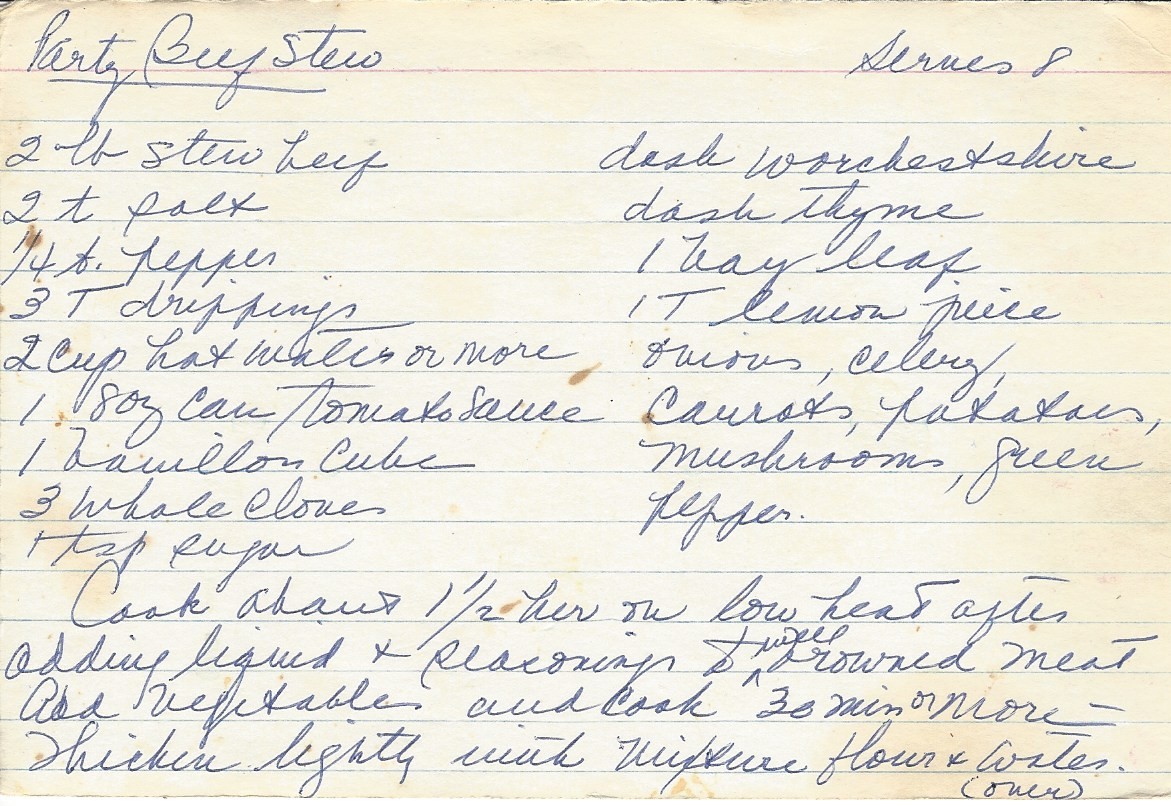 Party Beef Stew
Serves 8
2 lb stew beef
2 t salt
1/4 t. pepper
3 T drippings
2 cup hot water or more
1 8oz can tomato sauce
1 bouillon cube
3 whole cloves
1 tsp sugar
dash worchestshire
dash thyme
1 bay leaf
1 T lemon juice
onions, celery,
carrots, potatoes,
mushrooms, green
pepper.
Cook about 1 1/2 hr on low heat after
adding liquid + seasonings to well browned meat
Add vegetables and cook 30 min or more –
Thicken lightly with mixture flour + water.
(over)